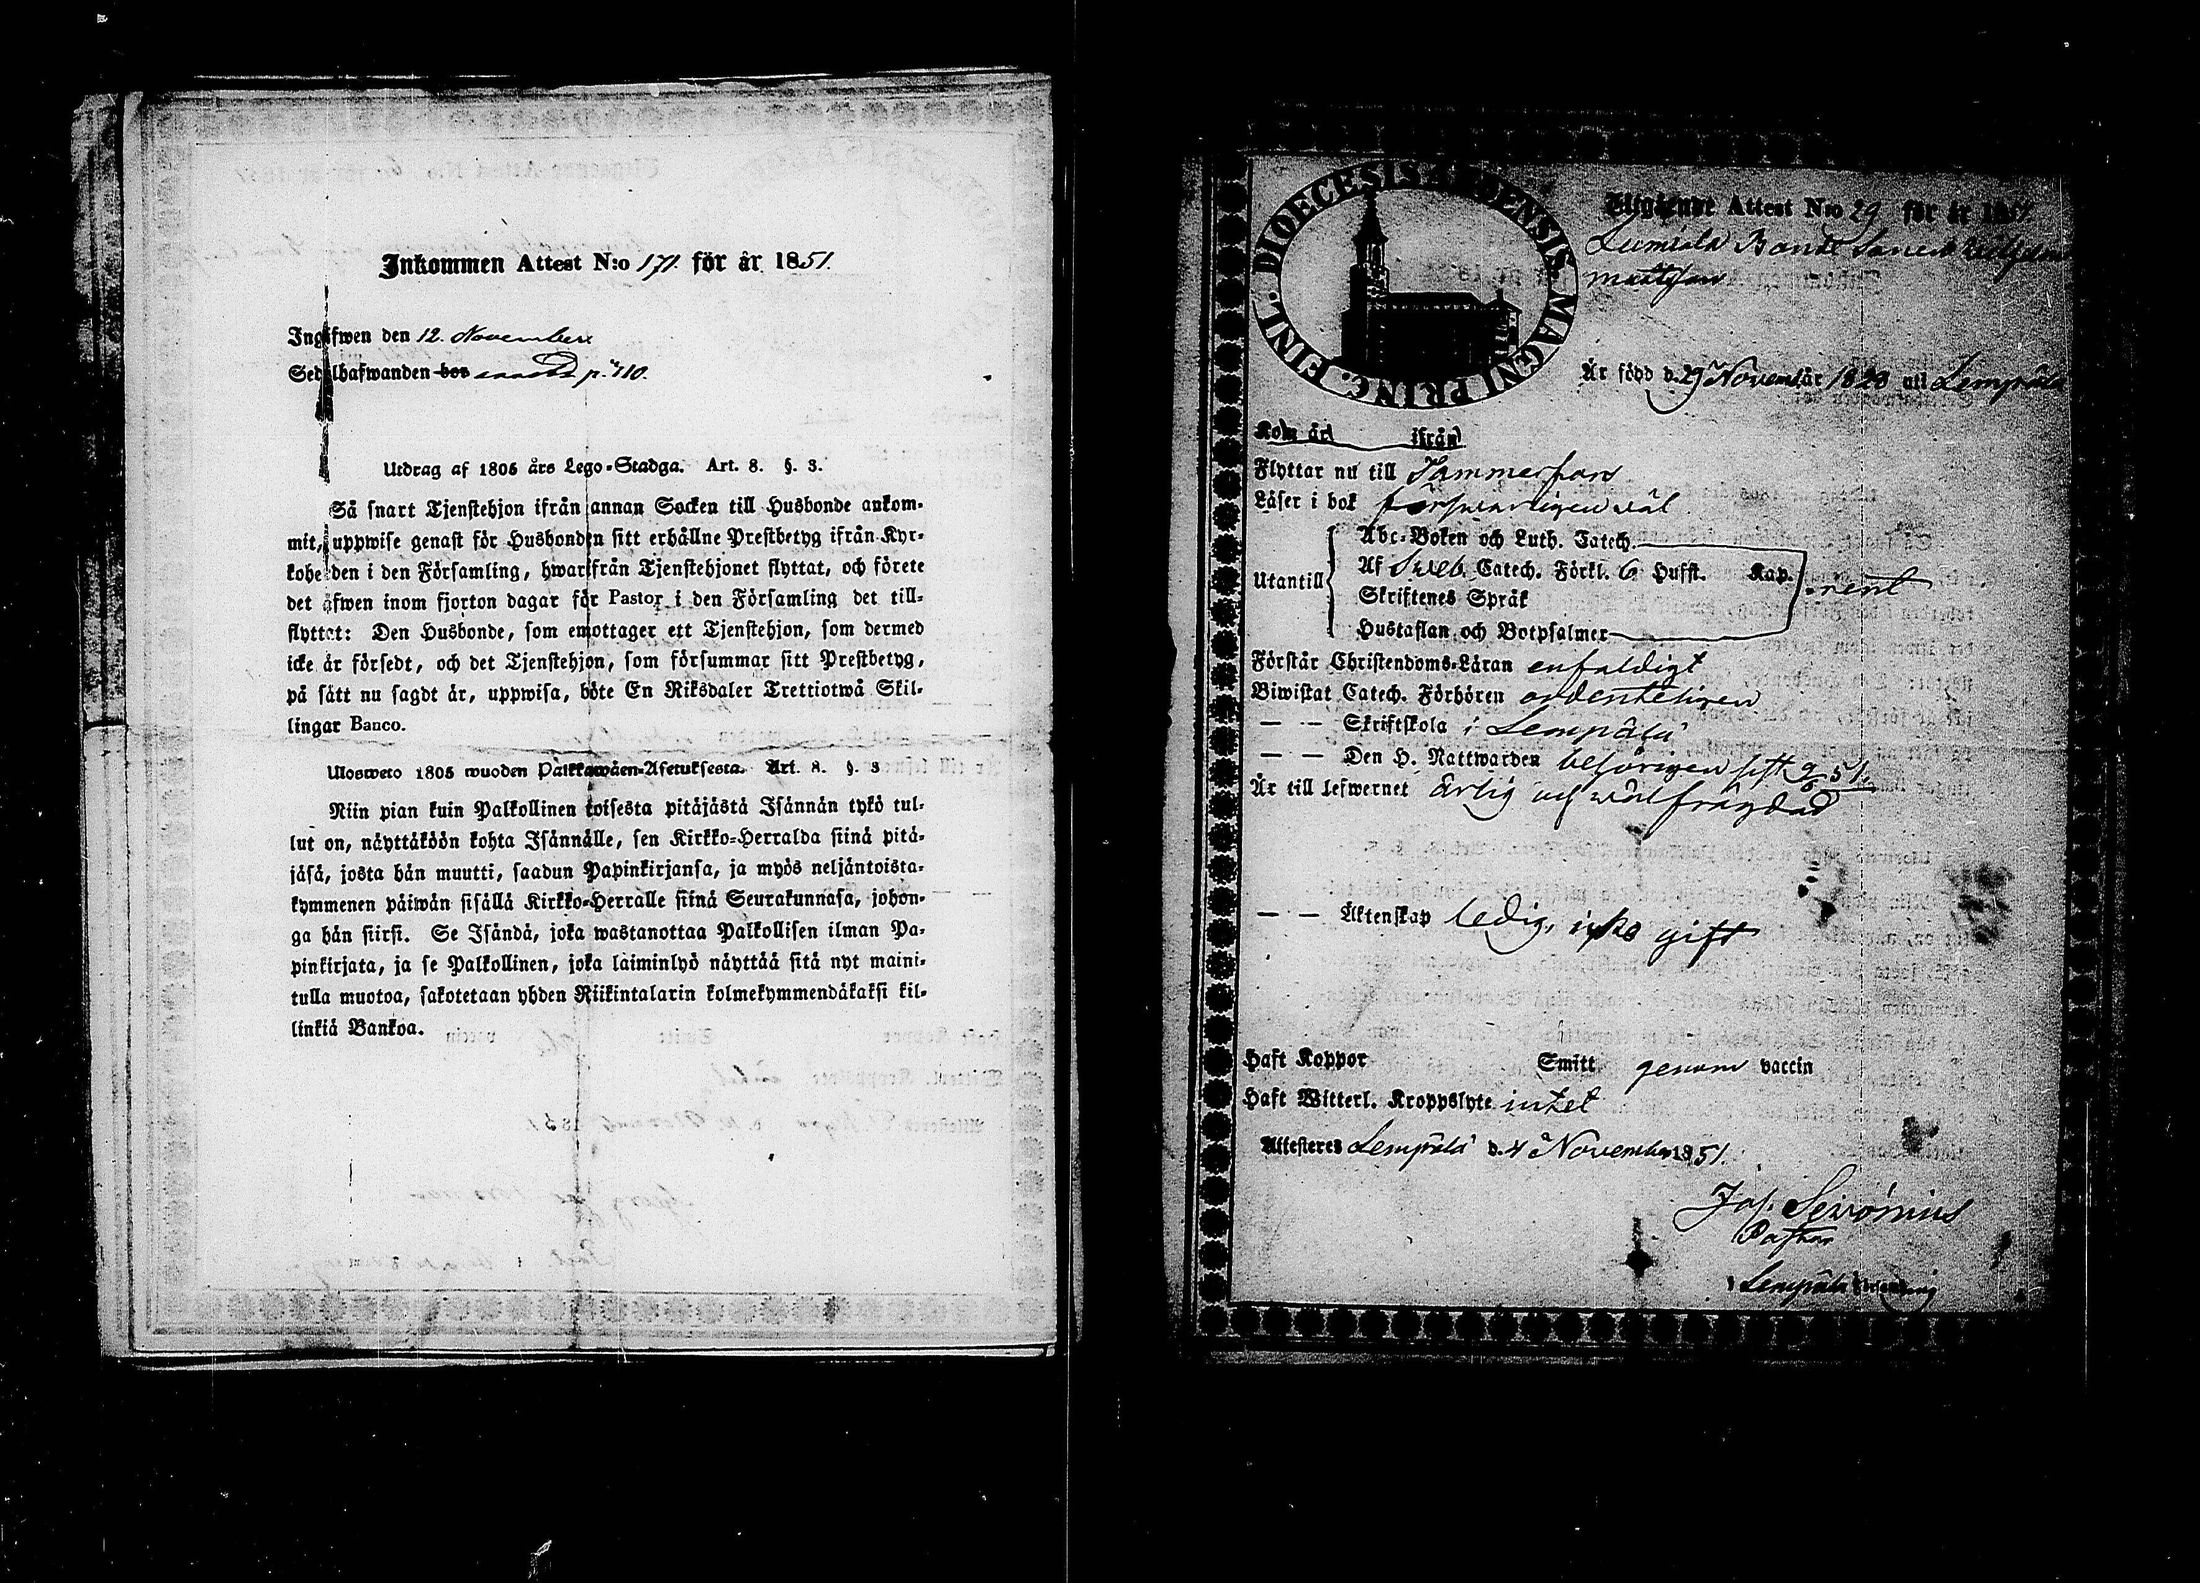 Inkommen Attest N:o 171. för år 1851.
Ingifwen den 12. November
Sedelhafwanden bor p. 110.
Utdrag af 1805 års Lego-Stadga. Art. 8. §. 3.
Så snart Tjenstehjon ifrån annan Socken till Husbonde ankom-
mit, uppwise genast för Husbonden sitt erhållne Prestbetyg ifrån Kyr-
koherden i den Församling, hwarifrån Tjenstehjonet flyttat, och förete
det äfwen inom fjorton dagar för Pastor i den Församling det till-
flyttat: Den Husbonde, som emottager ett Tjenstehjon, som dermed
icke är försedt, och det Tjenstehjon, som försummar sitt Prestbetyg,
på sätt nu sagdt är, uppwisa, böte En Riksdaler Trettiotwå Skil-
lingar Banco.
Ulosweto 1805 wuoden Palkkawäen-Asetuksesta. Art. 8. §. 3
Niin pian kuin Palkollinen toisesta pitäjästä Isännän tykö tul-
lut on, näyttäköön kohta Isännälle, sen Kirkko-Herralda siinä pitä-
jäsä, josta hän muutti, saadun Papinkirjansa, ja myös neljäntoista-
kymmenen päiwän sisällä Kirkko-Herralle siinä Seurakunnasa, johon-
ga hän siirsi. Se Isändä, joka wastanottaa Palkollisen ilman Pa-
pinkirjata, ja se Palkollinen, joka laiminlyö näyttää sitä nyt maini-
tulla muotoa, sakotetaan yhden Riikintalarin kolmekymmendäkaksi kil-
linkiä Bankoa.
DIOECESIS ABOENSIS. MAGNI PRINC. FINL.
Utgående Attest N:o 29 för år 1851.
Bonde
Är född d. 29 Novemb år 1828 uti Lempäla
Kom år ifrån
Flyttar nu till Tammerfors
Läser i bok försvarligen väl
Abc-Boken och Luth. Catech.
Utantill Af Sveb. Catech. Förkl. 6 Hufst. Kap. rent
Skriftenes Språk
Hustaflan och Botpsalmer
Förstår Christendoms-Läran enfaldigt
Biwistat Catech. Förhören ordenteligen
— — Skriftskola i Lempälä
— — Den H. Nattwarden behörigen sist 9/6 51.
Är till lefwernet ärlig och välfrägdad
— — Äktenskap ledig, icke gift
Haft Koppor Smitt genom vaccin
Haft Witterl. Kroppslyte intet
Attesteres Lempälä d. 4 November 1851.
Jos. Sevónius
Pastor
i Lempälä församling